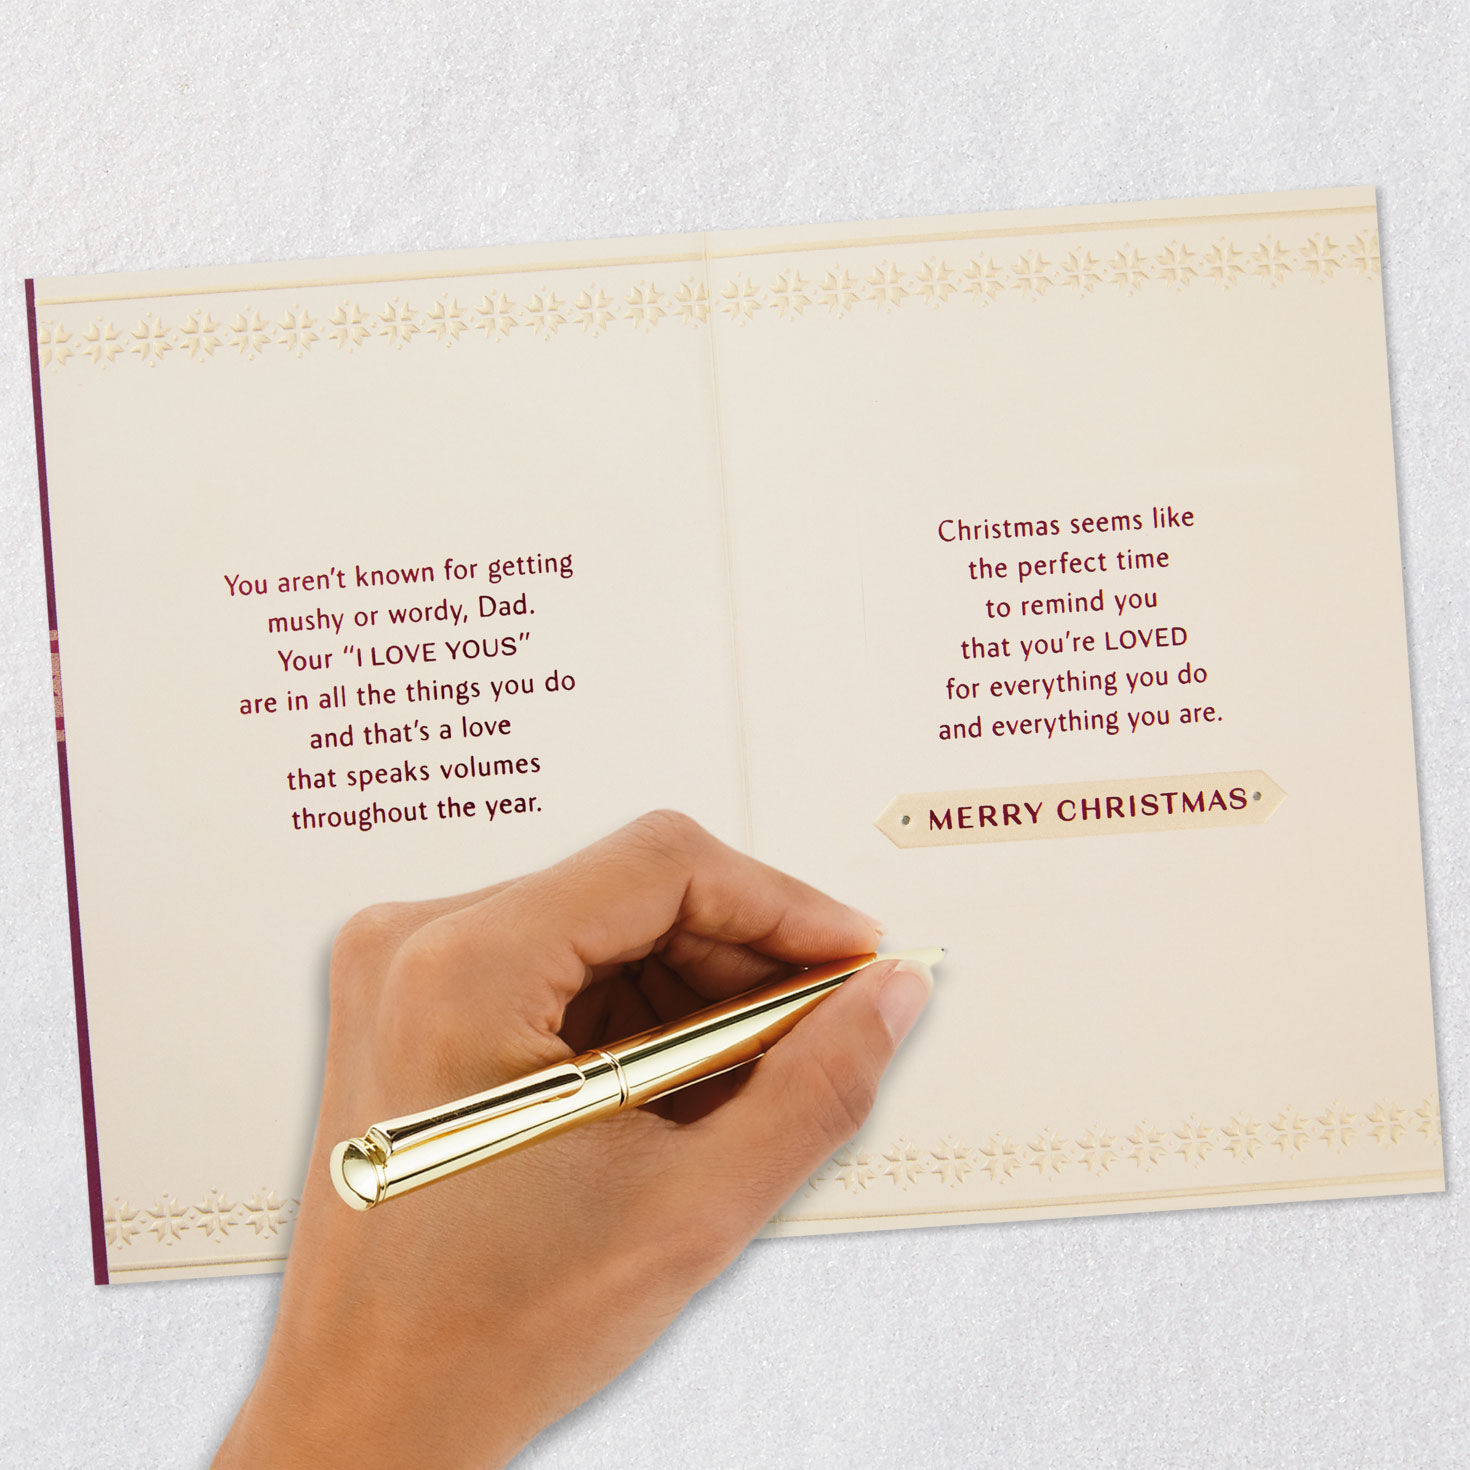 You aren't known for getting
mushy or wordy, Dad.
Your "I LOVE YOUS"
are in all the things you do
and that's a love
that speaks volumes
throughout the year.
Christmas seems like
the perfect time
to remind you
that you're LOVED
for everything you do
and everything you are.
MERRY CHRISTMAS